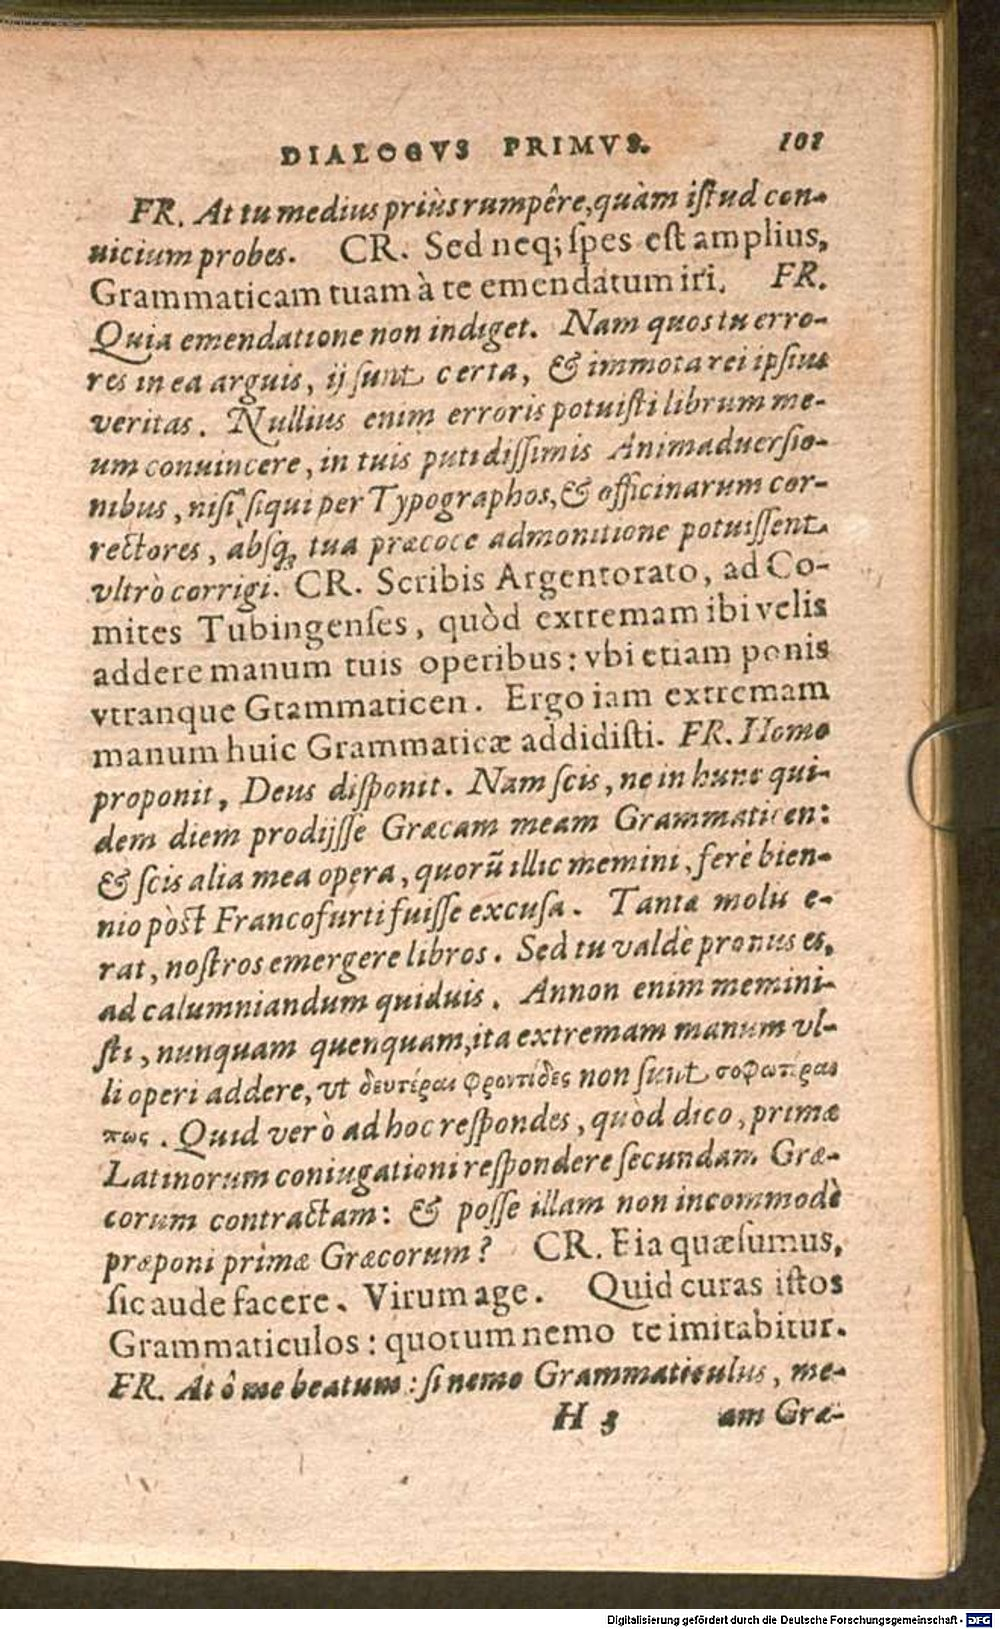 DIALOGVS PRIMVS. 101
FR. At tu medius priùs rumpêre, quàm istud con-
uicium probes. CR. Sed neq; spes est amplius,
Grammaticam tuam à te emendatum iri. FR.
Quia emendatione non indiget. Nam quos tu erro-
res in ea arguis, ij sunt certa, & immota rei ipsius
veritas. Nullius enim erroris potuisti librum me-
um conuincere, in tuis putidissimis Animaduersio-
nibus, nisi siqui per Typographos, & officinarum cor-
rectores, absq; tua præcoce admonitione potuissent
vltrò corrigi. CR. Scribis Argentorato, ad Co-
mites Tubingenses, quòd extremam ibi velis
addere manum tuis operibus: vbi etiam ponis
vtranque Grammaticen. Ergo iam extremam
manum huic Grammaticæ addidisti. FR. Homo
proponit, Deus disponit. Nam scis, ne in hunc qui-
dem diem prodijsse Græcam meam Grammaticen:
& scis alia mea opera, quorũ illic memini, ferè bien-
nio pòst Francofurti fuisse excusa. Tanta molis e-
rat, nostros emergere libros. Sed tu valdè pronus es,
ad calumniandum quiduis. Annon enim memini-
sti, nunquam quenquam, ita extremam manum vl-
li operi addere, vt δευτέραι φροντίδες non sunt σοφωτέραι
πως. Quid verò ad hoc respondes, quòd dico, primæ
Latinorum coniugationi respondere secundam Græ-
corum contractam: & posse illam non incommodè
præponi primæ Græcorum? CR. Eia quæsumus,
sic aude facere. Virum age. Quid curas istos
Grammaticulos: quotum nemo te imitabitur.
FR. At ô me beatum: si nemo Grammaticulus, me-
H 3 am Græ-
Digitalisierung gefördert durch die Deutsche Forschungsgemeinschaft - DFG